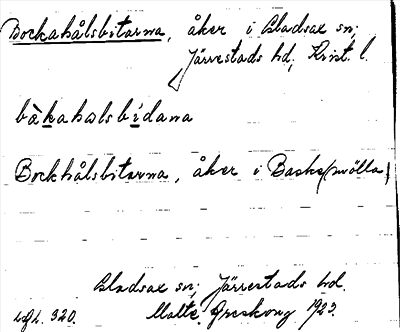 Bockahålsbitarna, åker i Gladsax sn;
Järrestads hd, Krist. l.
bàkahalsbídana
Bockhålsbitarna, åker i Baske(mölla)
Gladsax sn; Järrestads hd.
Lgh. 320. Malte Areskoug 1923.